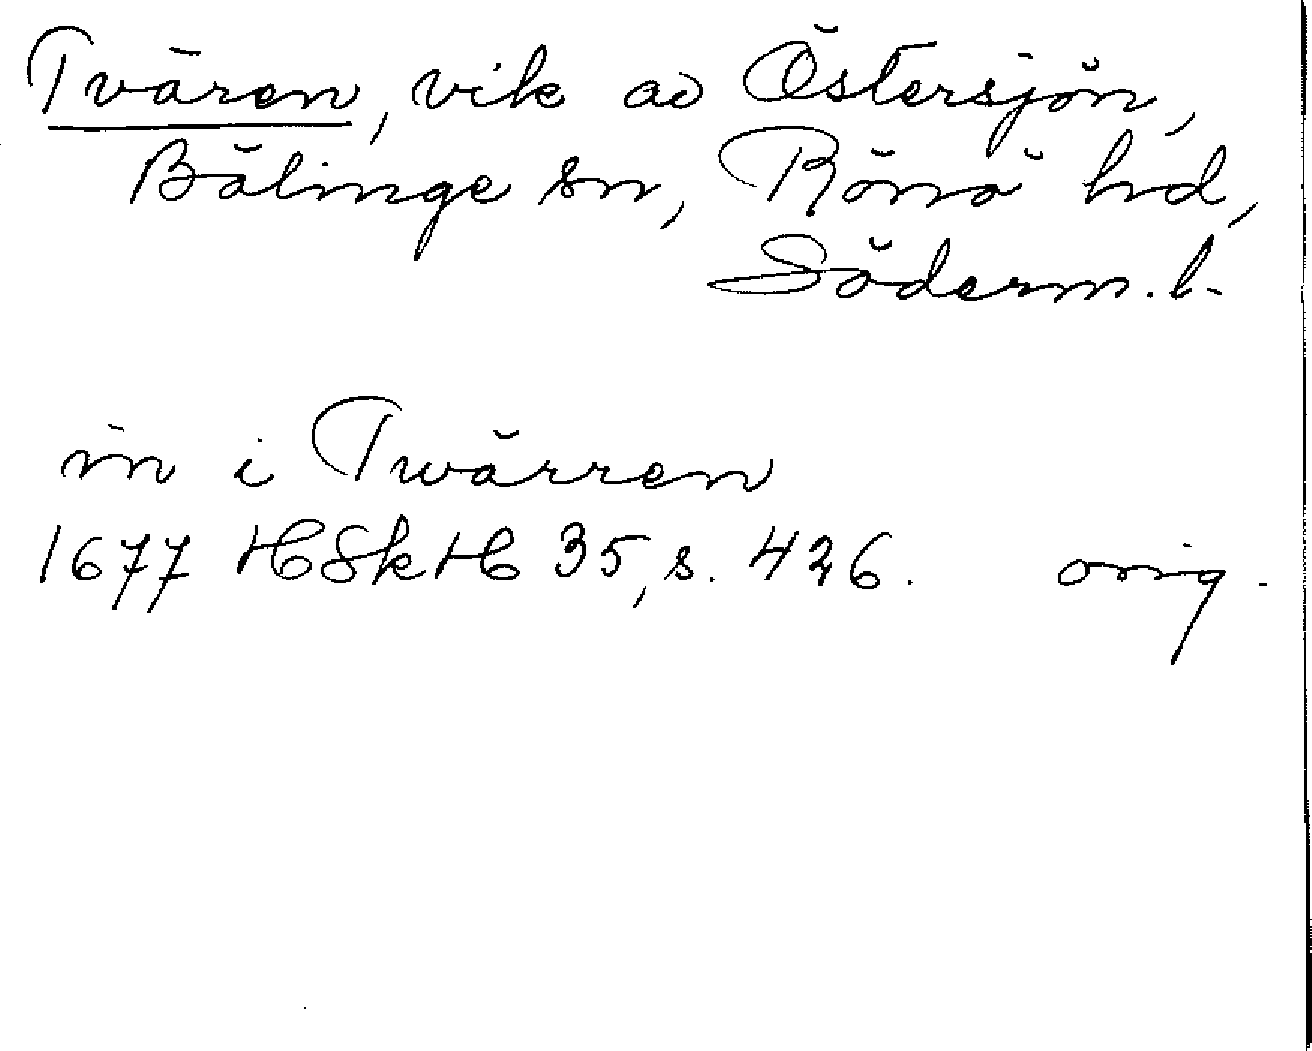 Tvären, vik av Östersjön,
Bälinge sn, Rönö hd,
Söderm. l.
in i Twärren
1677 HSkH 35, s. 426. orig.